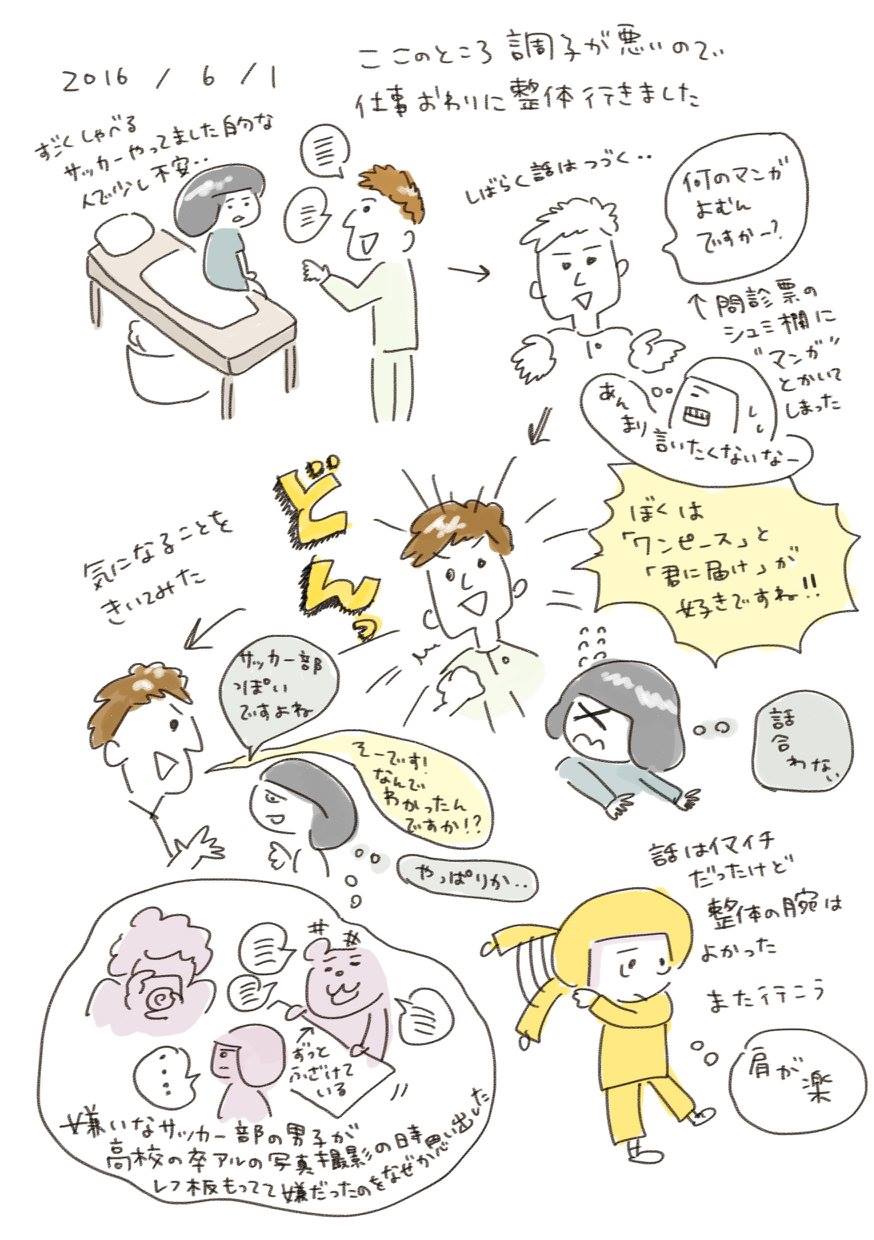 2016/6/1
ここのところ調子が悪いので
仕事おわりに整体行きました
すごくしゃべる
サッカーやってました的な
人で少し不安‥
しばらく話はつづく‥
何のマンガ
よむん
ですかー?
↑問診票の
シュミ欄に
"マンガ"
とかいて
しまった
あんまり言いたくないなー
どんっ
ぼくは
「ワンピース」と
「君に届け」が
好きですね!!
話
合
わない
気になることを
きいてみた
サッカー部
っぽい
ですよね
そーです!
なんで
わかったん
ですか!?
やっぱりか‥
ずっと
ふざけて
いる
嫌いなサッカー部の男子が
高校の卒アルの写真撮影の時
レフ板もってて嫌だったのをなぜか思い出した
話はイマイチ
だったけど
整体の腕は
よかった
また行こう
肩が
楽